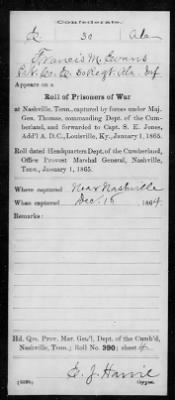 Confederate.
30 Ala
Francis M. Evans
Co. 30 Regt. Ala. Inf
Appears on a
Roll of Prisoners of War
at Nashville, Tenn., captured by forces under Maj.
Gen. Thomas, commanding Dept. of the Cum-
berland, and forwarded to Capt. S. E. Jones,
Add'l A. D. C., Louisville, Ky., January 1, 1865.
Roll dated Headquarters Dept. of the Cumberland,
Office Provost Marshal General, Nashville,
Tenn., January 1, 1865.
Where captured Near Nashville
When captured Dec. 16 1864
Remarks:
Hd. Qrs. Prov. Mar. Gen'l, Dept. of the Cumb'd,
Nashville, Tenn.; Roll No. 390; sheet
Copyist.